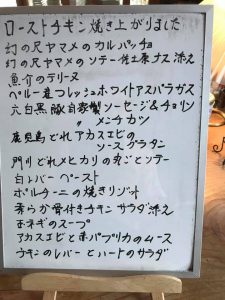 ローストチキン焼き上がりました
幻の尺ヤマメのカルパッチョ
幻の尺ヤマメのソテー佐土原ナス添え
魚介のテリーヌ
ペルー産フレッシュホワイトアスパラガス
穴白黒豚自家製ソーセージ&チョリソ
〃 メンチカツ
鹿児島どれアカスエビの
ソースグラタン
門川どれメヒカリの丸ごとソテー
白レバーペースト
ポルチーニの焼きリゾット
柔らか骨付きチキンサラダ添え
玉ネギのスープ
アカスエビと赤パプリカのムース
チキンのレバーとハートのサラダ